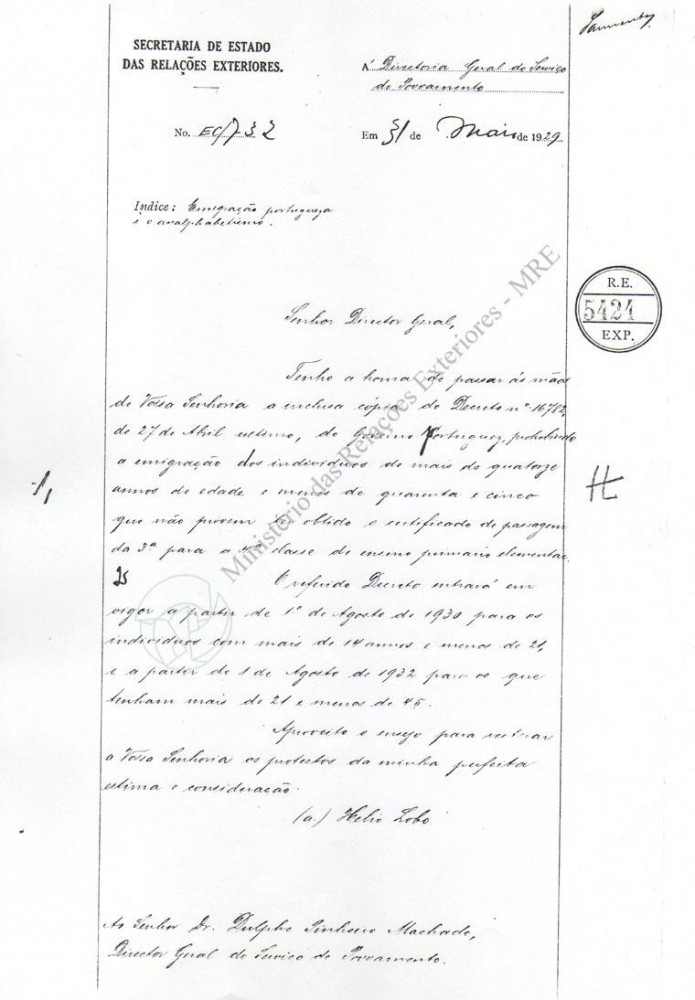 SECRETARIA DE ESTADO
DAS RELAÇÕES EXTERIORES.
Á Directoria Geral do Serviço
de Povoamento
No. EC/732
Em 31 de Maio de 1929
Indice: Emigração portugueza
e o analphabetismo.
R.E.
5424
EXP.
Senhor Director Geral,
Tenho a honra de passar ás mãos
de Vossa Senhoria a inclusa cópia do Decreto nº 16782,
de 27 de Abril ultimo, do Governo Portuguez, prohibindo
a emigração dos individuos de mais de quatorze
annos de edade e menos de quarenta e cinco
que não provem ter obtido o certificado de passagem
da 3ª para a 4ª classe de ensino primario elementar.
2s
O referido Decreto entrará em
vigor a partir de 1º de Agosto de 1930 para os
individuos com mais de 14 annos e menos de 21,
e a partir de 1 de Agosto de 1932 para os que
tenham mais de 21 e menos de 45.
Aproveito o ensejo para reiterar
a Vossa Senhoria os protestos da minha perfeita
estima e consideração.
(a.) Helio Lobo
Ao Senhor Dr. Dulphe Pinheiro Machado,
Director Geral do Serviço de Povoamento.
Ministério das Relações Exteriores - MRE